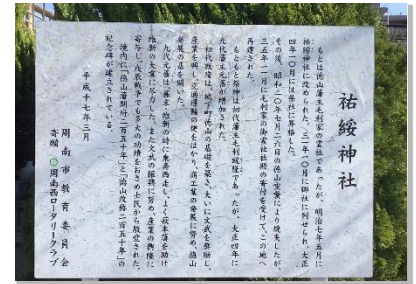 祐綏神社
もとは徳山藩主毛利家の霊社であったが、明治七年五月に
祐綏神社に改められた。三一年一〇月に郷社に列せられ、大正
四年一〇月に県社に昇格した。
その後、昭和二〇年七月二六日の徳山空襲により焼失したが、
三五年一一月に毛利家の御霊社社殿の寄付を受けて、この地へ
再建された。
もともと祭神は初代藩主毛利就隆であったが、大正四年に
九代藩主元蕃が増加された。
初代就隆は、城下町徳山の基礎を築き、大いに文武を奨励し、
産業を興し、交通運輸の便をはかり、商工業の発展に努め、徳山
発展の基を開いた。
九代元蕃は、幕末・維新の時に東奔西走し、よく萩本藩を助け
維新の大業に尽力した。また文武の振興に努め、産業の興隆に
寄与し、戊辰戦争でも多大の功績をおさめ士民から敬愛された。
境内に「徳山藩開府二百五十年」と「徳山改称二百五十年」の
記念碑が建立されている。
平成十七年三月
周南市教育委員会
寄贈 周南西ロータリークラブ